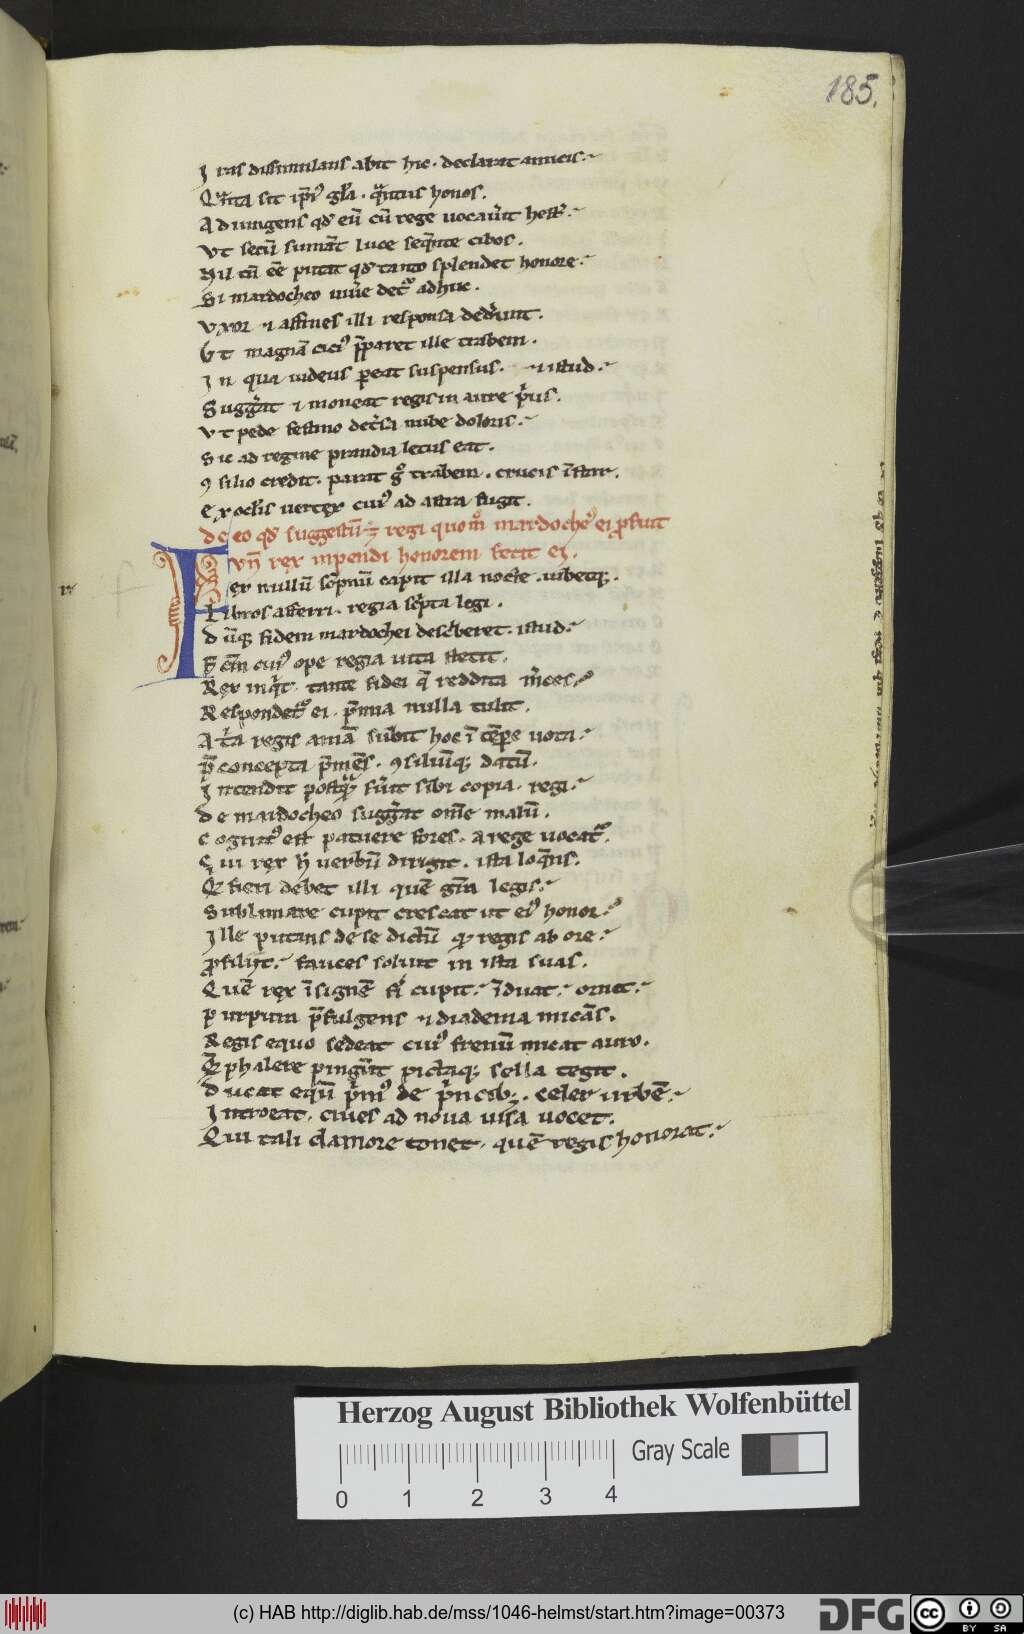 185.
Iras dissimulans abit hic. declarat amicis.
Qͣnta sit ipi᷒ gła. qͣntus honos.
Adiungens qđ eū cū rege uocauit hest̄.
Vt secū sumāt luce seqͣnte cibos.
Nil tn̄ eē putat qđ tanto splendet honore.
Si mardocheo uiuͤe det᷒ adhuc.
Vxor ⁊ affines illi responsa dedͤunt.
Vt magnā cici᷒ p̄paret ille trabem.
In qua iudeus ꝑeat suspensus. ⁊ istud.
Suggͤat ⁊ moneat regis in aure pͥus.
Vt pede festino detͤsa nube doloris.
Sic ad regine prandia letus eat.
ꝯsilio credit. parat gͦ trabem. crucis īstar.
Ex oclis uertex cui᷒ ad astra fugit.
De eo qđ suggestū regi quom̊ mardoche᷒ ei ꝓfuit
vn̄ rex inpendi honorem fecit ei.
Fer nullū sōpnū capit illa nocte. iubetq;.
Libros afferri. regia scͥpta legi.
Dūq; fidem mardochei descͥberet. istud.
cui᷒ ope regia uita stetit.
Rex inqͥt. tante fidei qͣ reddita mͤces.
Respondet᷒ ei. p̄mia nulla tulit.
regis aman subit hoc ī tēpore uota.
concepta ꝯsiliūq; datū.
Intendit postqͣ; fuͤit sibi copia. regi.
De mardocheo suggͤat omͤ malū.
Cognit᷒ est patuere fores. a rege uocat᷒.
Cui rex hͦ uerbū dirigit. ista loqͣns.
Qͥd fieri debet illi quē gͣm legis.
Sublimare cupit crescat ut ei᷒ honor.
Ille putans de se dictū regis ab ore.
ꝓsiliit. fauces soluit in ista suas.
Quē rex īsignē fͥ cupit. īduat. ornet.
Purpura p̄fulgens ⁊ diadema micās.
Regis equo sedeat cui᷒ frenū micat auro.
phalere pingūt pictaq; sella tegit.
Ducat equū pͥm᷒ de pͥncib;. celer urbē.
Introeat. ciues ad noua uisa uocet.
Qui tali clamore tonet. quē regis honorat.
Herzog August Bibliothek Wolfenbüttel
Gray Scale
0 1 2 3 4
(c) HAB http://diglib.hab.de/mss/1046-helmst/start.htm?image=00373
DFG
cc BY SA